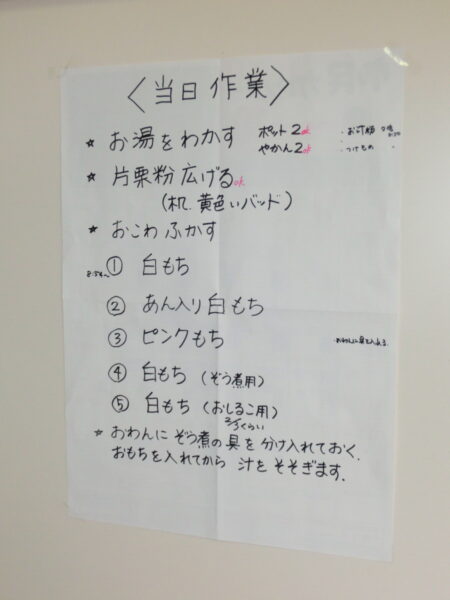 〈当日作業〉
★ お湯をわかす ポット2ok
やかん2ok
・つけもの
★ 片栗粉広げるok
(机、黄色いバッド)
★ おこわふかす
8:54〜 ① 白もち
② あん入り白もち
③ ピンクもち
④ 白もち (ぞう煮用)
⑤ 白もち (おしるこ用)
2/3くらい
★ おわんにぞう煮の具を分け入れておく.
おもちを入れてから 汁をそそぎます.